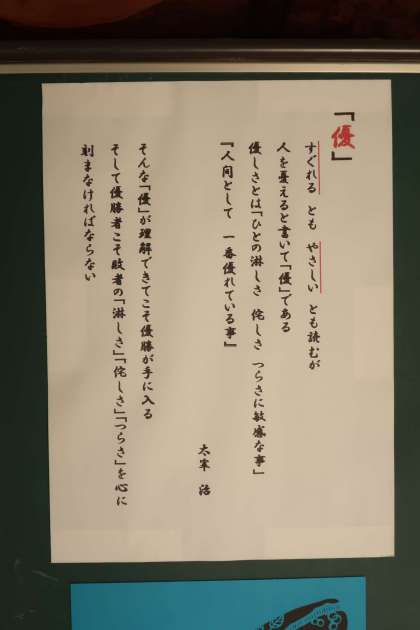 「優」
すぐれる とも やさしい とも読むが
人を憂えると書いて「優」である
優しさとは「ひとの淋しさ 侘しさ つらさに敏感な事」
『人間として 一番優れている事』
太宰 治
そんな「優」が理解できてこそ優勝が手に入る
そして優勝者こそ敗者の「淋しさ」「侘しさ」「つらさ」を心に
刻まなければならない